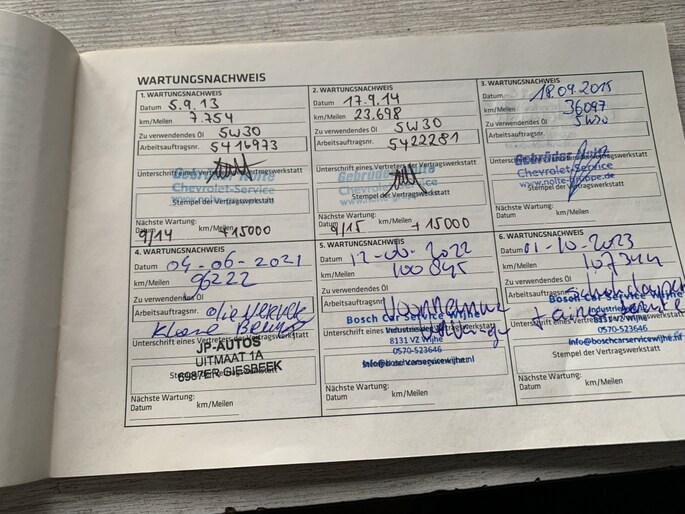 WARTUNGSNACHWEIS
1. WARTUNGSNACHWEIS
Datum 5.9.13
km/Meilen 7.754
Zu verwendendes Öl 5W30
Arbeitsauftragsnr. 5416973
Unterschrift eines Vertreters der Vertragswerkstatt
Chevrolet-Service
Stempel der Vertragswerkstatt
Nächste Wartung:
Datum 9/14 km/Meilen +15000
2. WARTUNGSNACHWEIS
Datum 17.9.14
km/Meilen 23.698
Zu verwendendes Öl 5W30
Arbeitsauftragsnr. 5422281
Unterschrift eines Vertreters der Vertragswerkstatt
Gebrüder Nolte
Chevrolet-Service
Stempel der Vertragswerkstatt
Nächste Wartung:
Datum 9/15 km/Meilen +15000
3. WARTUNGSNACHWEIS
Datum 18.09.2015
km/Meilen 36097
Zu verwendendes Öl 5W30
Arbeitsauftragsnr.
Unterschrift eines Vertreters der Vertragswerkstatt
Gebrüder Nolte
Chevrolet-Service
Stempel der Vertragswerkstatt
Nächste Wartung:
Datum km/Meilen
4. WARTUNGSNACHWEIS
Datum 04-06-2021
km/Meilen 96222
Zu verwendendes Öl
Arbeitsauftragsnr.
Kleine Beurt
Unterschrift eines Vertreters der Vertragswerkstatt
JP-AUTOS
UITMAAT 1A
6987ER GIESBEEK
Stempel der Vertragswerkstatt
Nächste Wartung:
Datum km/Meilen
5. WARTUNGSNACHWEIS
Datum 12-00-2022
km/Meilen 100845
Zu verwendendes Öl
Arbeitsauftragsnr.
Bosch Car Service Wijhe
Unterschrift eines Vertreters der Vertragswerkstatt
8131 VZ Wijhe
0570-523646
Stempel der Vertragswerkstatt
info@boschcarservicewijhe.nl
Nächste Wartung:
Datum km/Meilen
6. WARTUNGSNACHWEIS
Datum 01-10-2023
km/Meilen 107344
Zu verwendendes Öl
Arbeitsauftragsnr.
Bosch Car Service Wijhe
Unterschrift eines Vertreters der Vertragswerkstatt
8131 VZ Wijhe
0570-523646
info@boschcarservicewijhe.nl
Stempel der Vertragswerkstatt
Nächste Wartung:
Datum km/Meilen